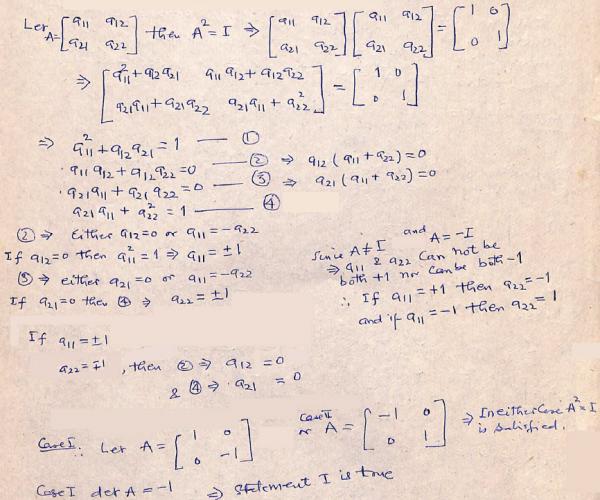 Let A = [a11 a12; a21 a22] then A² = I ⇒ [a11 a12; a21 a22] [a11 a12; a21 a22] = [1 0; 0 1]
⇒ [a11² + a12a21  a11a12 + a12a22; a21a11 + a21a22  a21a11 + a22²] = [1 0; 0 1]
⇒ a11² + a12a21 = 1 — ①
a11a12 + a12a22 = 0 — ② ⇒ a12(a11 + a22) = 0
a21a11 + a21a22 = 0 — ③ ⇒ a21(a11 + a22) = 0
a21a11 + a22² = 1 — ④
② ⇒ Either a12 = 0 or a11 = -a22
If a12 = 0 then a11² = 1 ⇒ a11 = ±1
③ ⇒ either a21 = 0 or a11 = -a22
If a21 = 0 then ④ ⇒ a22 = ±1
Since A ≠ I and A = -I
⇒ a11 & a22 can not be
both +1 nor can be both -1
∴ If a11 = +1 then a22 = -1
and if a11 = -1 then a22 = 1
If a11 = ±1
a22 = ∓1, then ② ⇒ a12 = 0
& ④ ⇒ a21 = 0
Case I: Let A = [1 0; 0 -1] Case II or A = [-1 0; 0 1] ⇒ In either Case A² = I
is satisfied.
Case I det A = -1 ⇒ Statement I is true